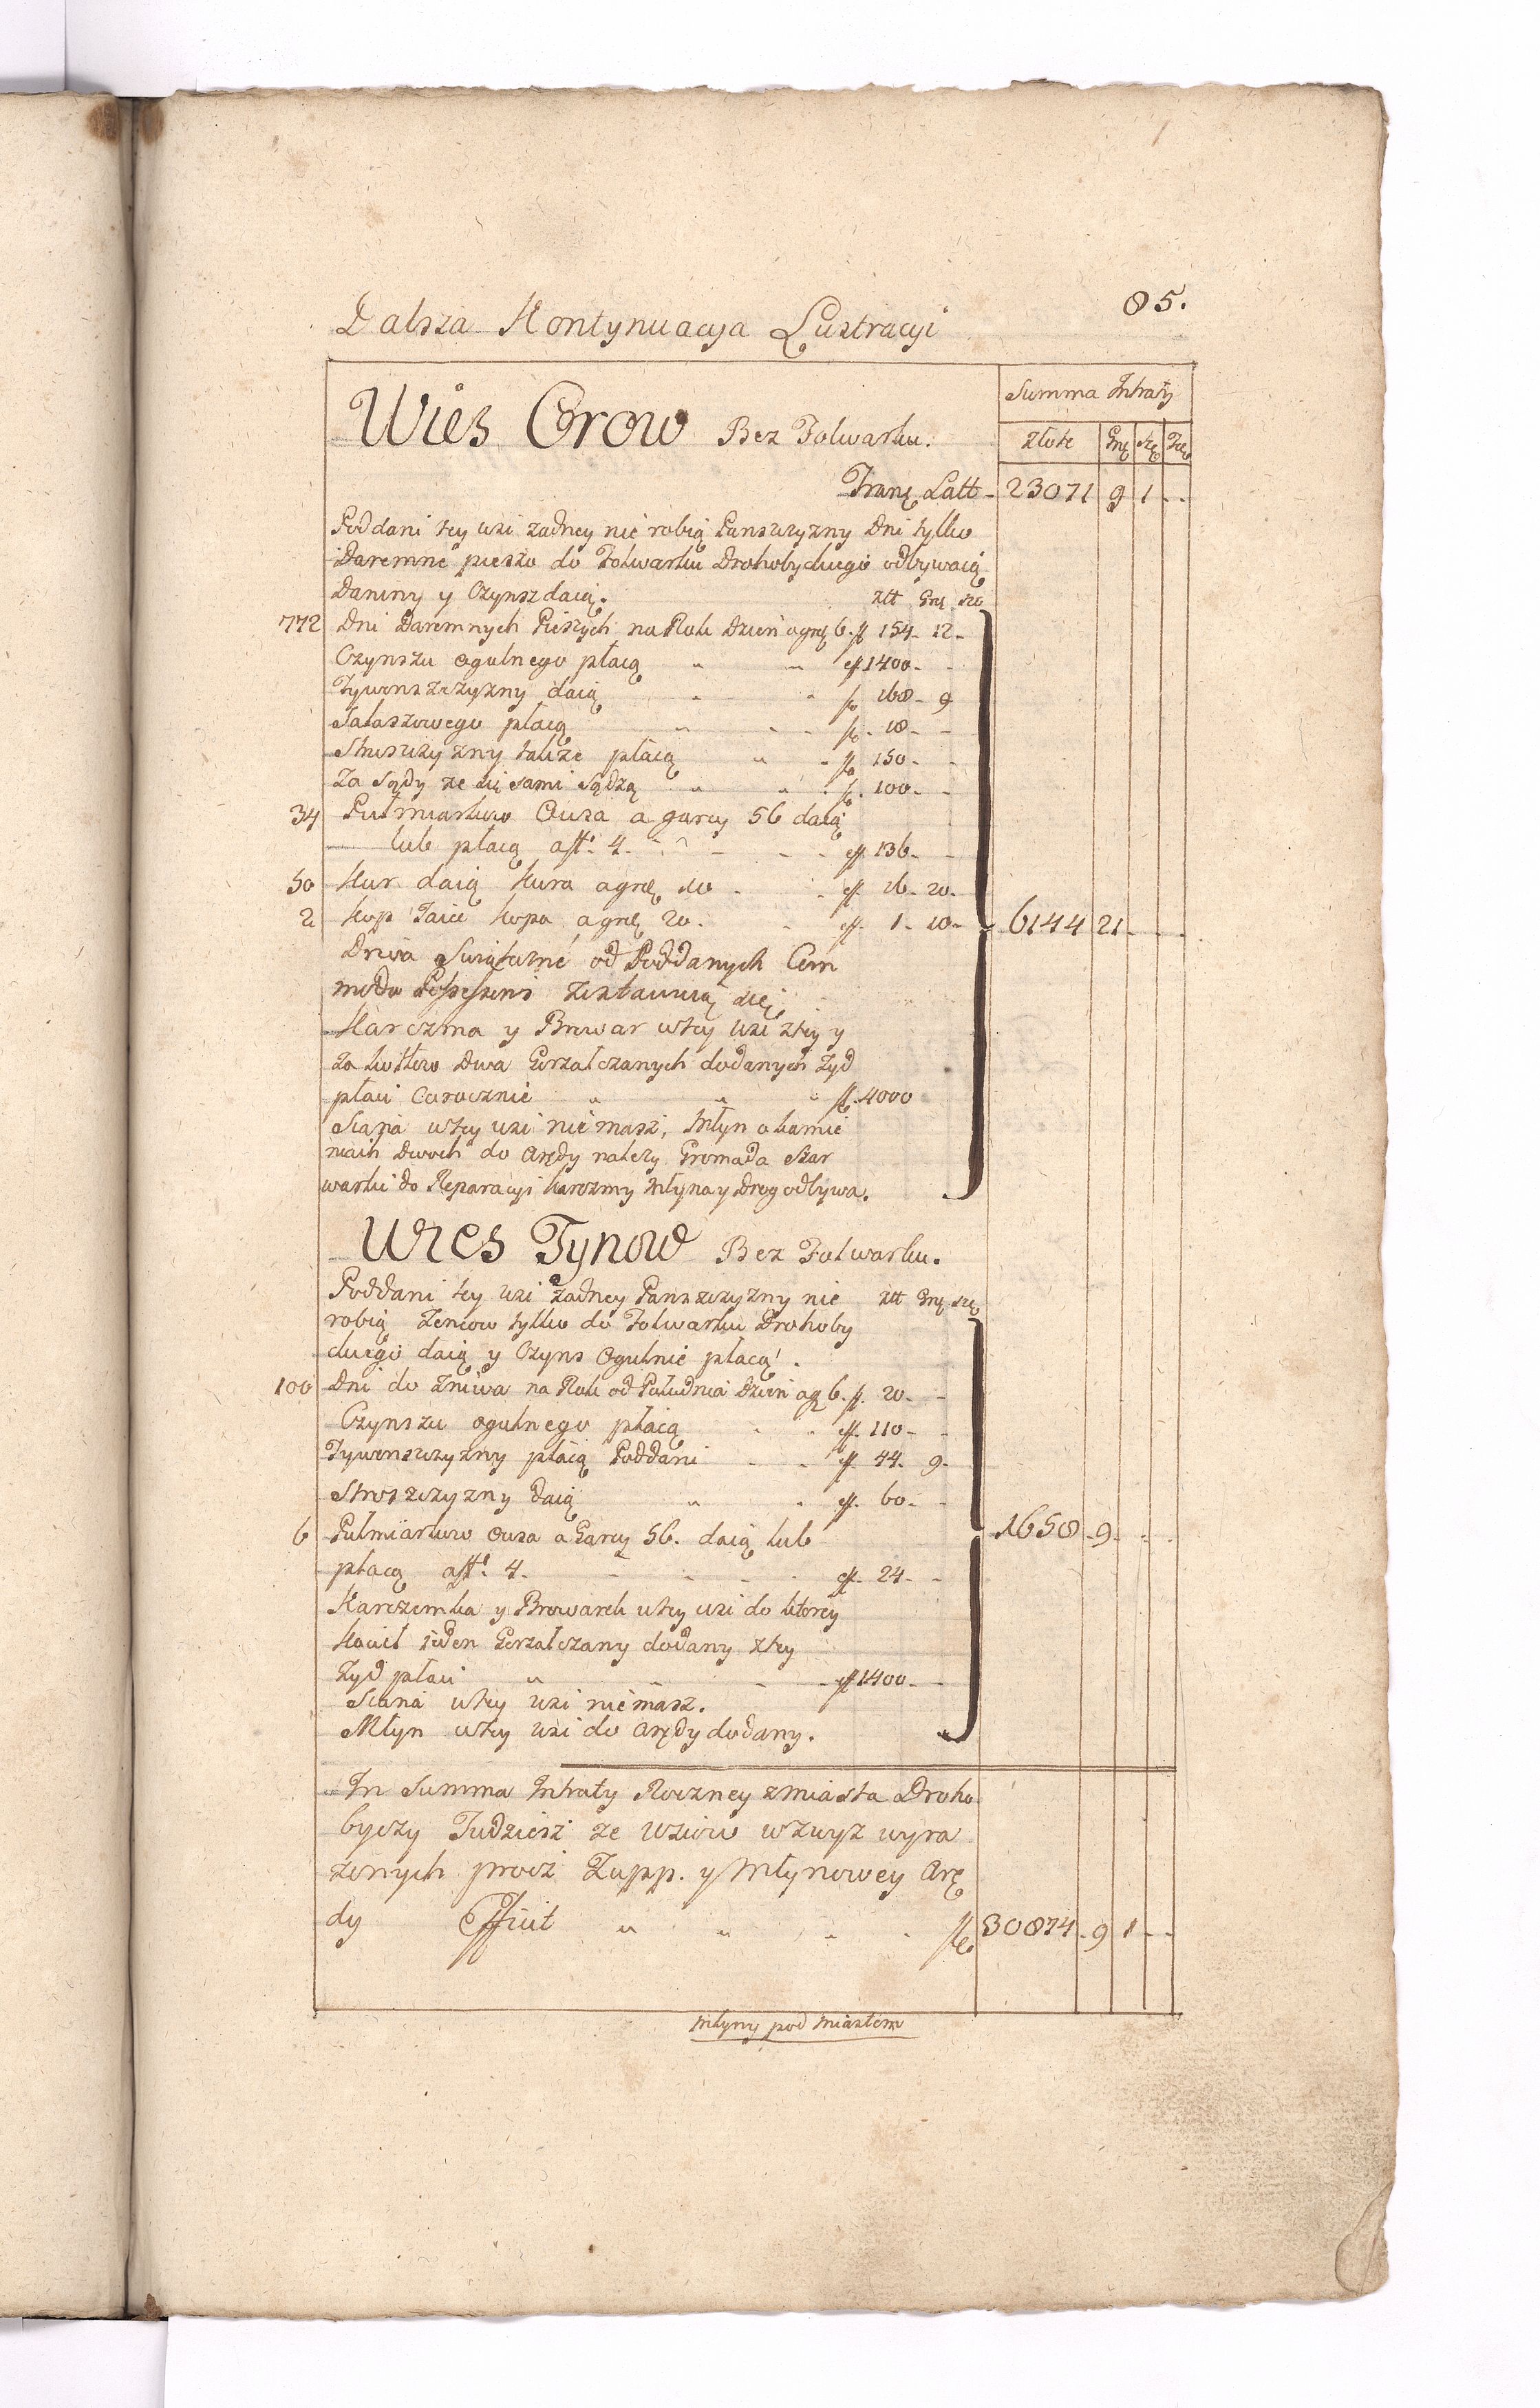 85.
Dalsza Kontynuacya Lustracyi
Wies Orow Bez Folwarku.
Summa Intraty
Złote Grę Szę
Tranſ. Latt - 23071 9 1 - -
Poddani tey wsi zadney nie robią Panszczyzny Dni tylko
Daremne pieszo do Folwarku Drohobyckiego odbywaią
Daniny y Czynsz daią. Złt Grę Szę
772 Dni Daremnych Pieszych na Rok Dzień a grę 6. fl 154 - 12 -
Czynszu ogulnego płacą " " fl 1400 - -
Tywonszczyzny daią " " fl 168 - 9
Sałaszowego płacą " " fl 18 - -
Struszczyzny także płacą " " fl 150 - -
Za sądy ze się sami sądzą " " fl. 100 - -
34 Pułmiarkow Owsa a garcy 56 daią
lub płacą a fl. 4. - - - fl 136 - -
50 Kur daią Kura a grę 10 - - fl 16 - 20 -
2 Kop Jaiec kopa a grę 20. - fl. 1 - 10 - 6144 21 - - -
Drwa od Poddanych Com
modo Possessoris zostawuią się
Karczma y Browar w tey wsi z tey y
za kotłow Dwa Gorzałczanych dodanych Zyd
płaci Corocznie " " " fl. 4000
Stawu w tey wsi nie masz, Młyn o kamie
niach Dwoch do Arędy nalezy Gromada Szar
warki do Reparacyi karczmy Młyna y Drog odbywa.
Wies Tynow Bez Folwarku.
Poddani tey wsi zadney Panszczyzny nie Złt Grę Szę
robią Żeńcow tylko do Folwarku Drohoby
ckiego daią y Czynsz Ogulnie płacą.
100 Dni do Zniwa na Rok od Południa Dzień a gr 6. fl. 20 - -
Czynszu ogulnego płacą - - fl. 110 - -
Tywonszczyzny płacą Poddani - - fl. 44 - 9 -
Stroszczyzny Daią " - fl. 60 - -
6 Pułmiarkow owsa a Garcy 56. daią lub 1650 - 9 - - -
płacą a fl. 4. - - - - fl. 24 - -
Karczemka y Browarek w tey wsi do ktorey
Kocieł ieden Gorzałczany dodany z tey
Zyd płaci " - - - fl 1400 - -
w tey wsi nie masz.
Młyn w tey wsi do arędy dodany.
In Summa Intraty Roczney z miasta Droho
byczy Tudziesz ze Wsiow wzwyż wyra
zonych procz Zupp. y Młynowey Arę
dy Efficit " " - - fl 30874 - 9 1 - -
Młyny pod Miastem